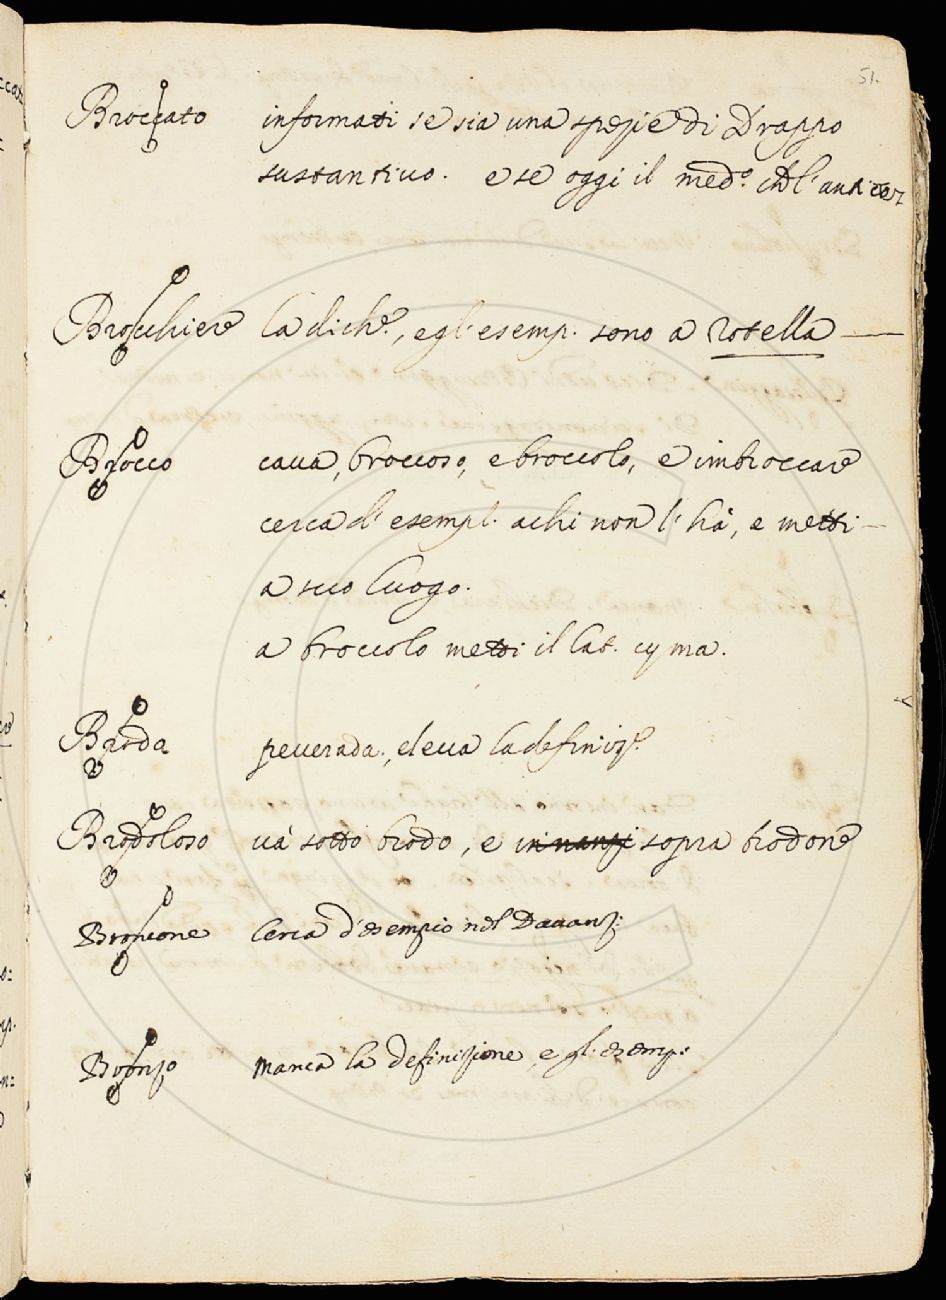 51.
Broccato informati se sia una spezie di Drappo
sustantivo. e se oggi il med.º
Brocchiere la dich.e, e gl'esemp. sono a rotella
Brocco cava, broccoso, e broccolo, e imbroccare
cerca d'esempl. a chi non l'hà, e metti
a suo luogo.
a broccolo metti il lat. cyma.
Broda peverada, e leva la definiz.e
Brodoloso và sotto brodo, e innanzi sopra brodone
Broncone Cerca d'esempio nel Davanz:
Bronzo Manca la definizione, e gl'esemp: